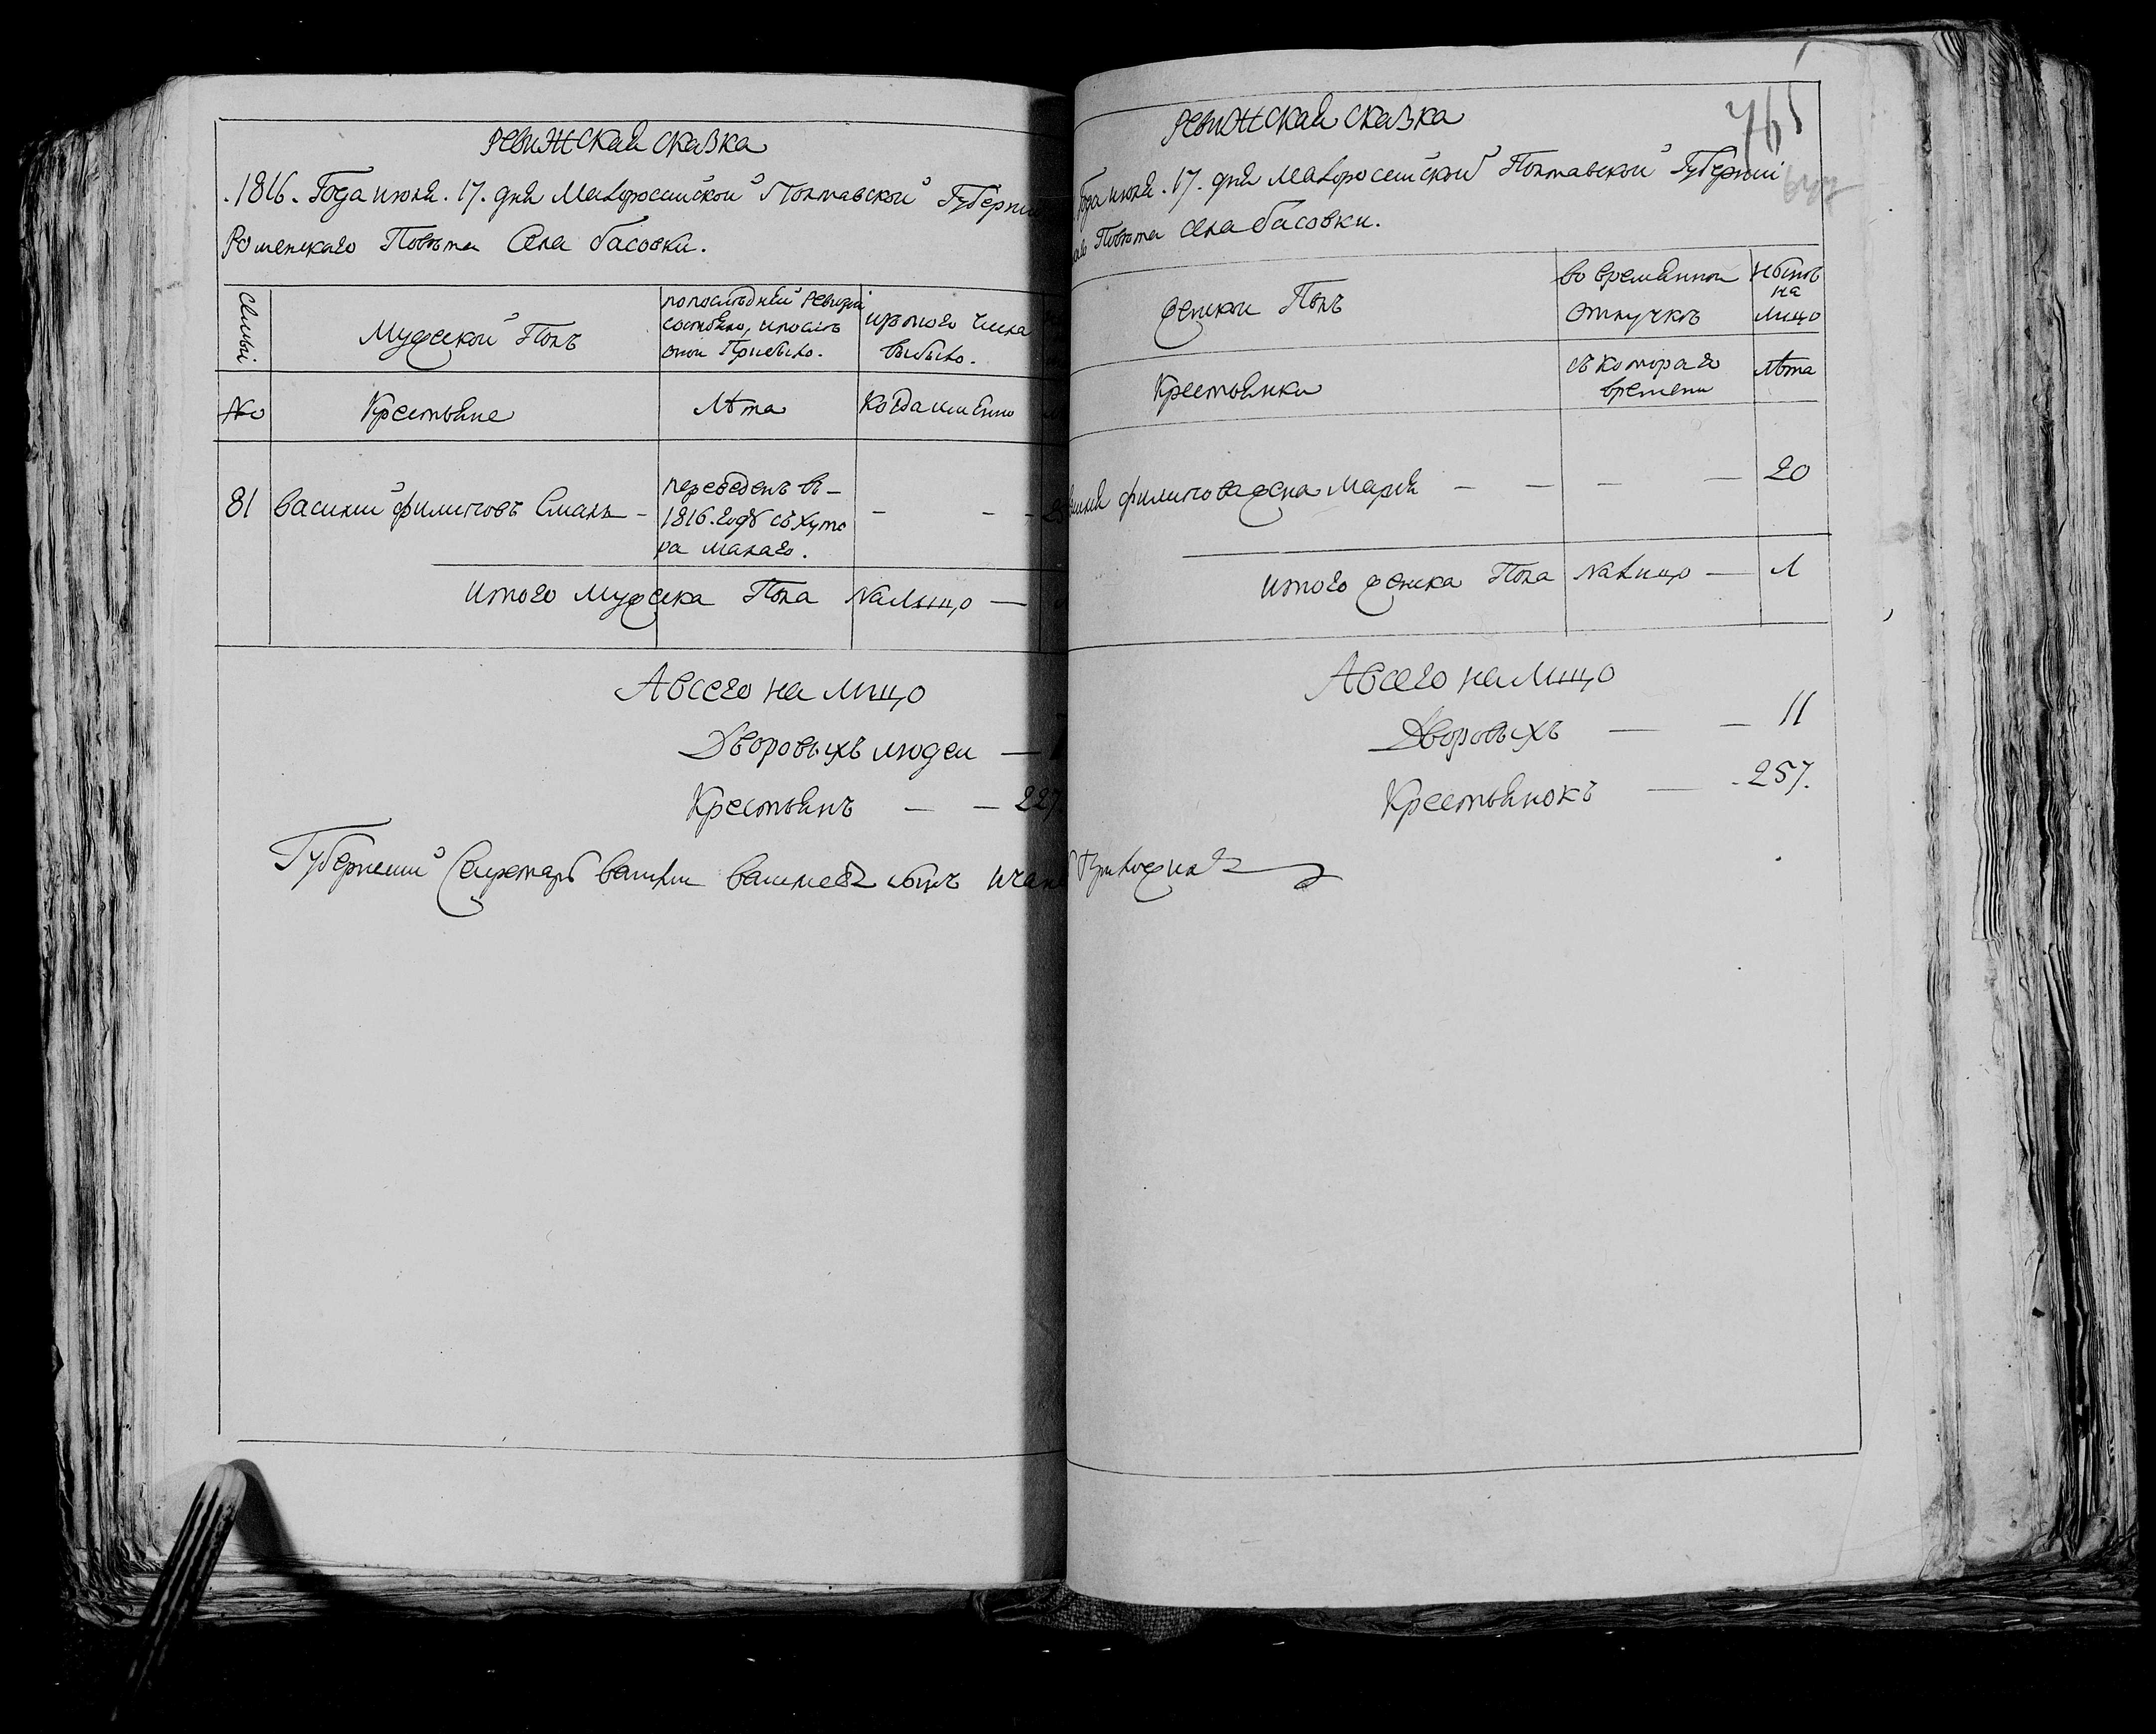 Ревижская сказка
1816. Года июля. 17. дня Малоросийской Полтавской Губернии
Роменскаго Повѣта Села басовки.
семьи
Мужеской Полъ
попослѣдней ревизіи
состояло, ипослѣ
оной Прибыло.
изтого числа
выбыло.
№
Крестьяне
лѣта
Когда имянно
81
василий филиповъ Смаль
переведенъ въ
1816. годѣ съ хуто
ра малаго.
Итого мужеска Пола налицо —
Авсего налицо
Дворовыхъ людей —
Крестьянъ — — 227
Губернский Секретарь василий васильевъ сынъ
765
Ревижская сказка
Года июля. 17. дня малоросийской Полтавской Губернии
Повѣта села басовки.
Женской Полъ
во временной
отлучкѣ
нынѣ
на
лицо
Крестьянки
съ котораго
времени
лѣта
филипова жена Марья — — — — 20
Итого женска Пола налицо — 1
Авсего налицо
Дворовыхъ — — 11
Крестьянокъ — 257.